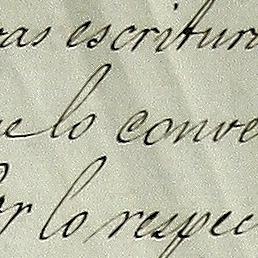 ras escritur
e lo conve
or lo respec